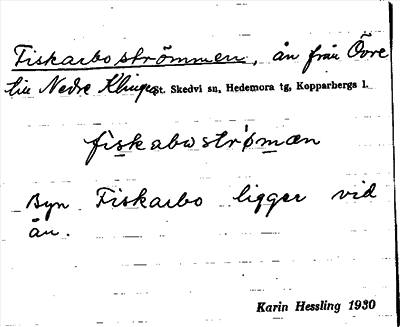 Fiskarboströmmen, ån från Övre
till Nedre Klingen St. Skedvi sn, Hedemora tg, Kopparbergs l.
fiskaboströmæn
Byn Fiskarbo ligger vid
ån.
Karin Hessling 1930